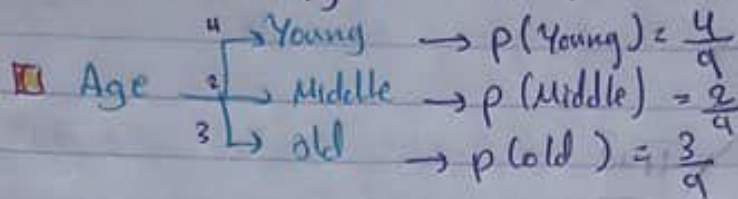 4 → Young → P(Young) = 4/9
Age 2 → Middle → P(Middle) = 2/9
3 → old → P(old) = 3/9